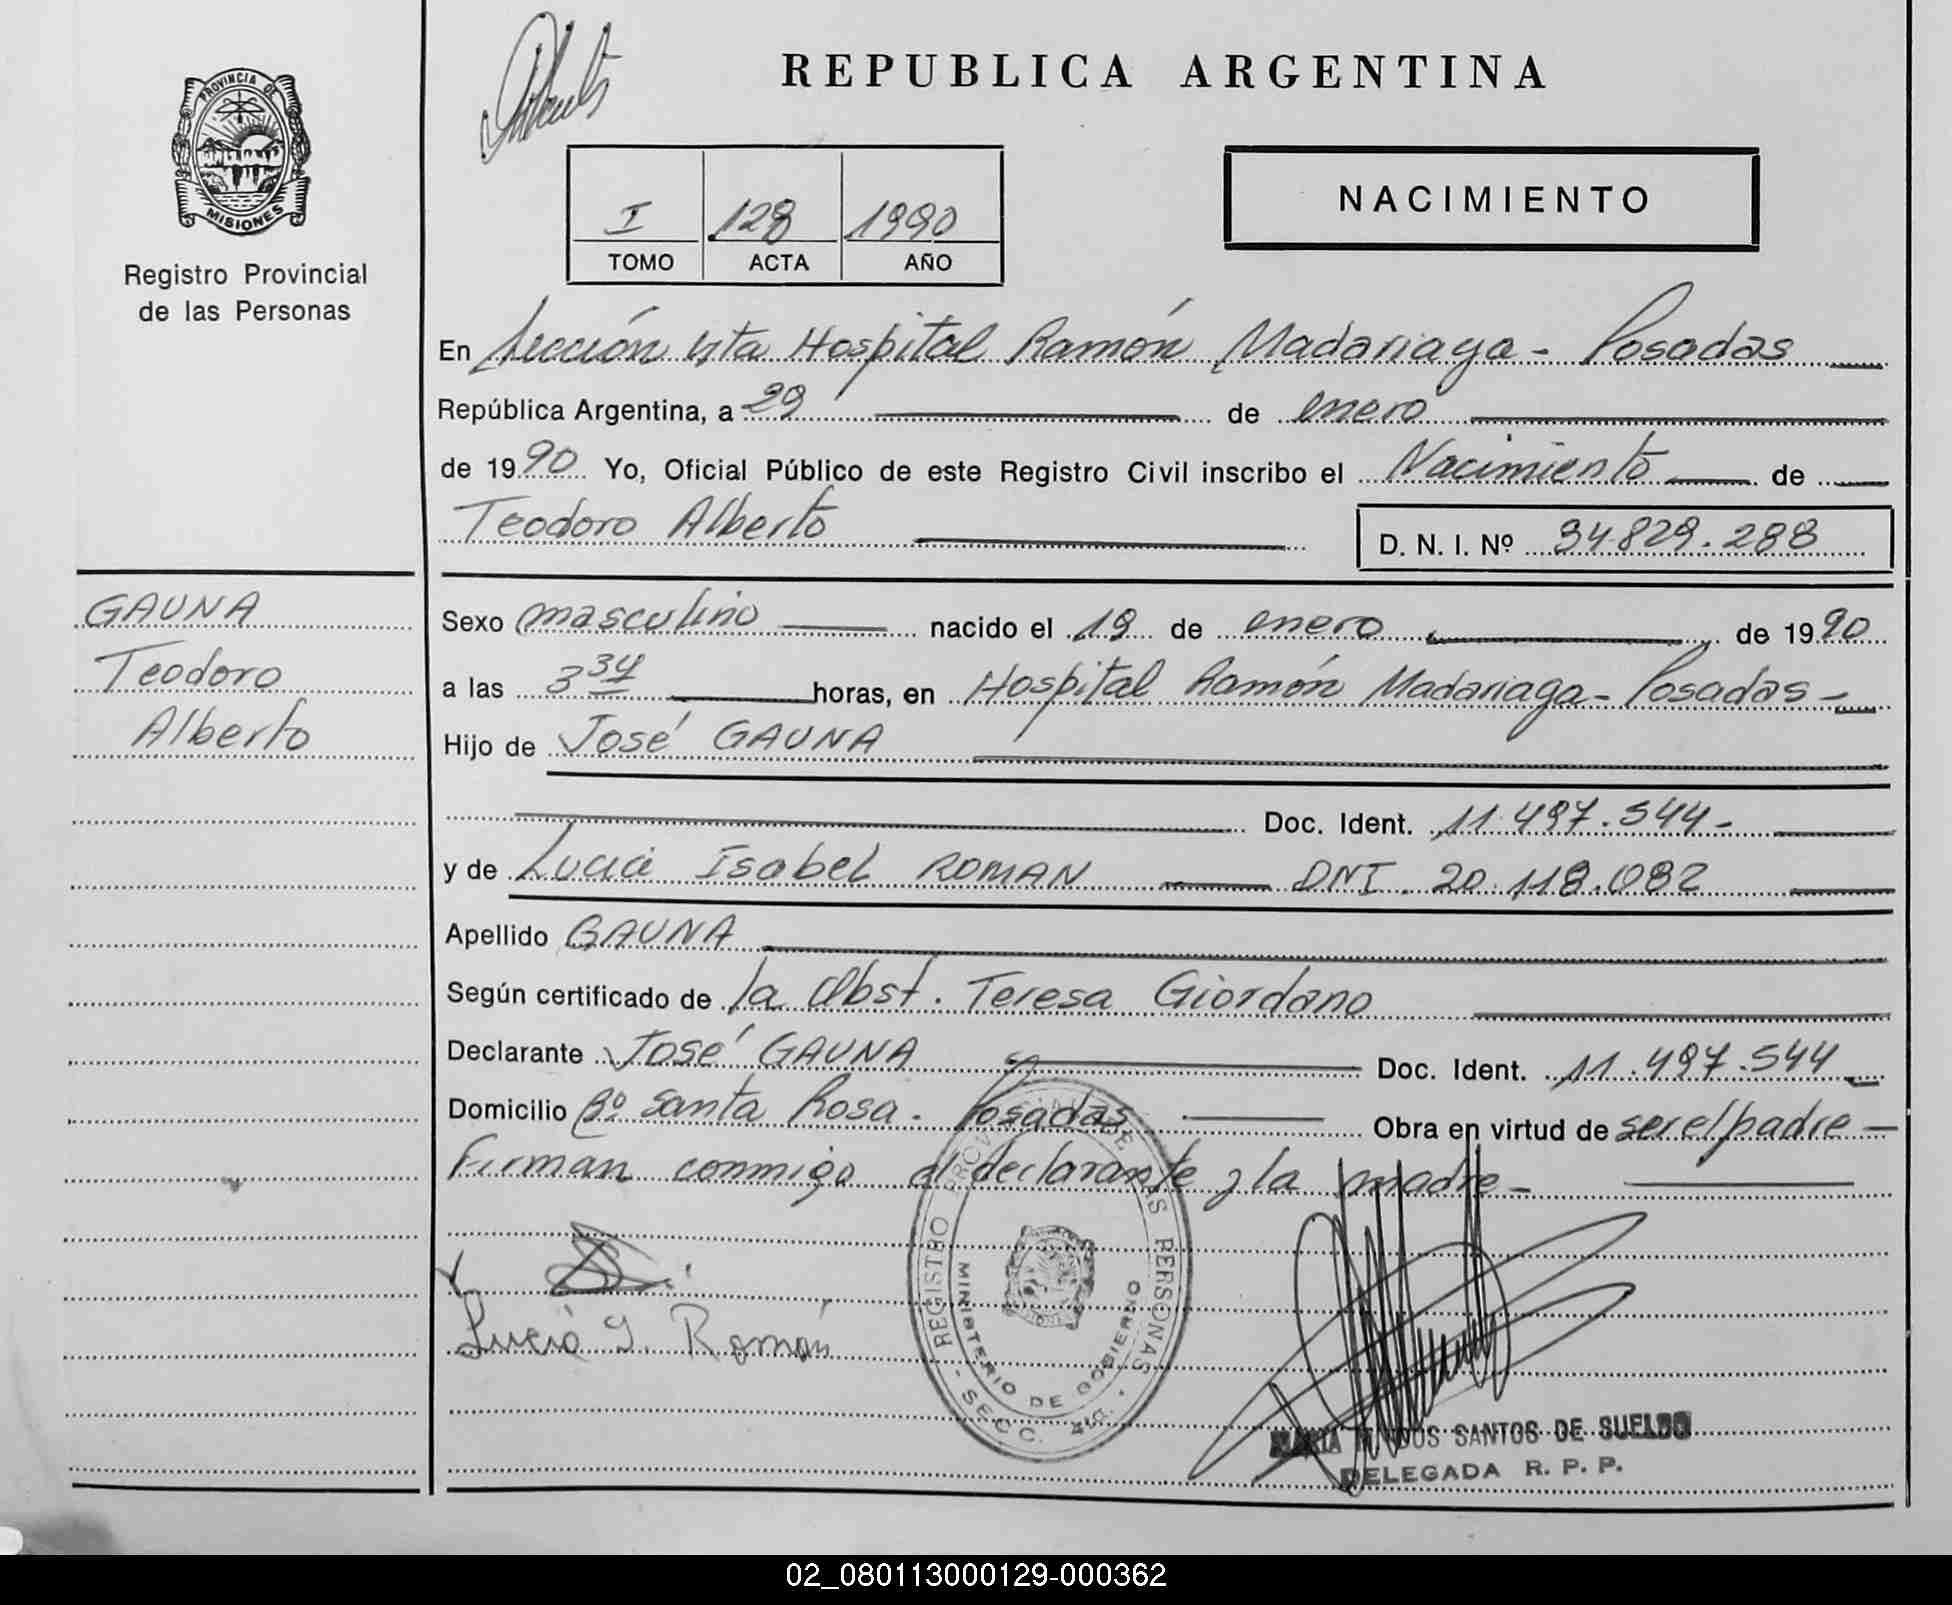 REPUBLICA ARGENTINA
PROVINCIA DE
MISIONES
Registro Provincial
de las Personas
I 128 1990
TOMO ACTA AÑO
NACIMIENTO
En Sección 4ta Hospital Ramón Madariaga - Posadas
República Argentina, a 29 de enero
de 1990 Yo, Oficial Público de este Registro Civil inscribo el Nacimiento de
Teodoro Alberto
D. N. I. Nº 34.829.288
GAUNA
Teodoro
Alberto
Sexo masculino nacido el 19 de enero de 1990
a las 3 34 horas, en Hospital Ramón Madariaga - Posadas -
Hijo de José GAUNA
Doc. Ident. 11.497.544 -
y de Lucia Isabel ROMAN DNI. 20.118.082
Apellido GAUNA
Según certificado de la Obst. Teresa Giordano
Declarante José GAUNA Doc. Ident. 11.497.544
Domicilio Bº Santa Rosa. Posadas Obra en virtud de ser el padre
Firman conmigo el declarante y la madre -
Lucia I. Román
REGISTRO PROVINCIAL DE LAS PERSONAS
MINISTERIO DE GOBIERNO
- SECC. 4ta. -
MARIA DOS SANTOS DE SUELDO
DELEGADA R. P. P.
02_080113000129-000362